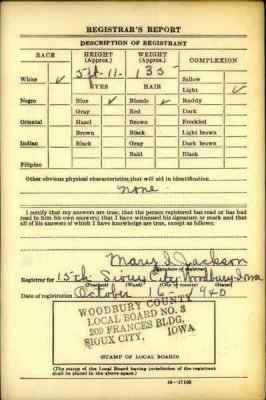 REGISTRAR'S REPORT
DESCRIPTION OF REGISTRANT
RACE HEIGHT (Approx.) WEIGHT (Approx.) COMPLEXION
5 ft. 11 135 Sallow
White ✓ EYES HAIR Light ✓
Negro Blue ✓ Blonde ✓ Ruddy
Gray Red Dark
Oriental Hazel Brown Freckled
Brown Black Light brown
Indian Black Gray Dark brown
Bald Black
Filipino
Other obvious physical characteristics that will aid in identification
None
I certify that my answers are true; that the person registered has read or has had
read to him his own answers; that I have witnessed his signature or mark and that
all of his answers of which I have knowledge are true, except as follows:
Mary I. Jackson
(Signature of registrar)
Registrar for 15th Sioux City Woodbury Iowa
(Precinct) (Ward) (City or county) (State)
Date of registration October 16 - 1940
WOODBURY COUNTY
LOCAL BOARD NO. 3
209 FRANCES BLDG.
SIOUX CITY, IOWA
(STAMP OF LOCAL BOARD)
(The stamp of the Local Board having jurisdiction of the registrant
shall be placed in the above space.)
16—17105